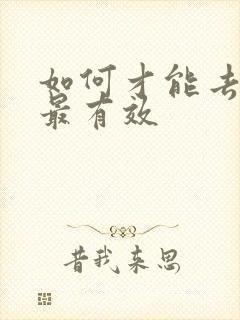 如何才能去
最有效
昔我来思